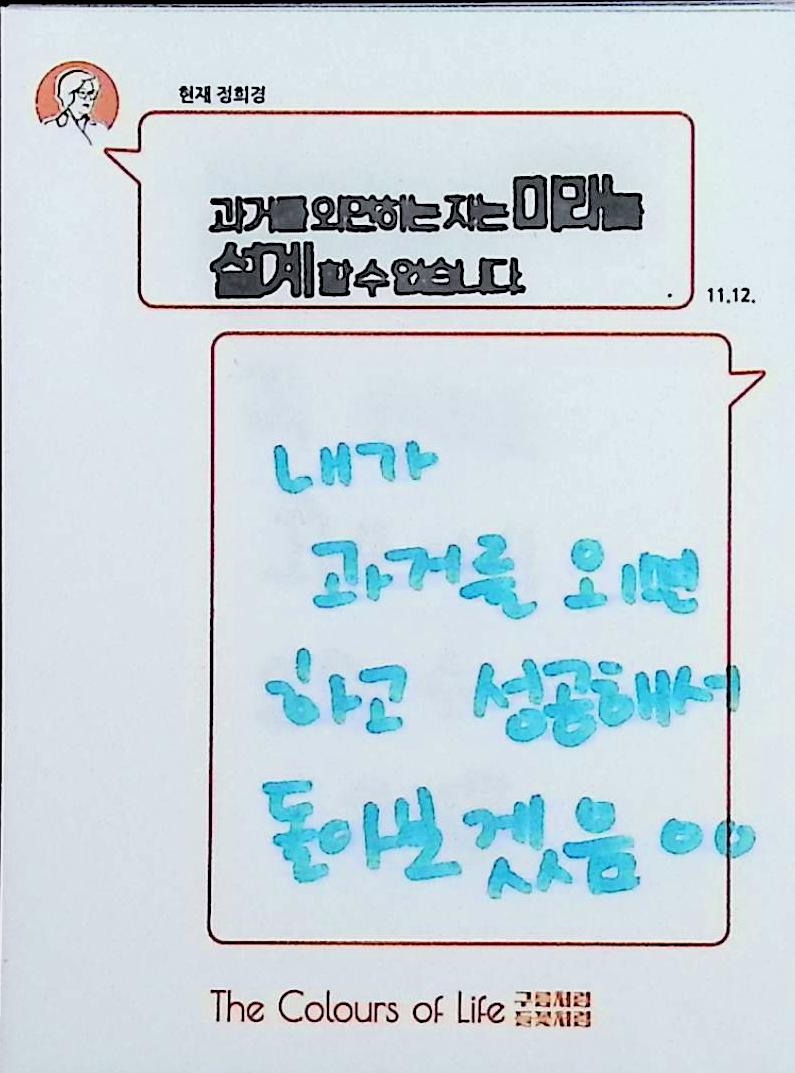 현재 정희경
과거를 외면하는 자는 미래를
설계 할 수 없습니다.
11.12.
내가
과거를 외면
하고 성공해서
돌아보겠음 ㅇㅇ
The Colours of Life 구름처럼
들꽃처럼